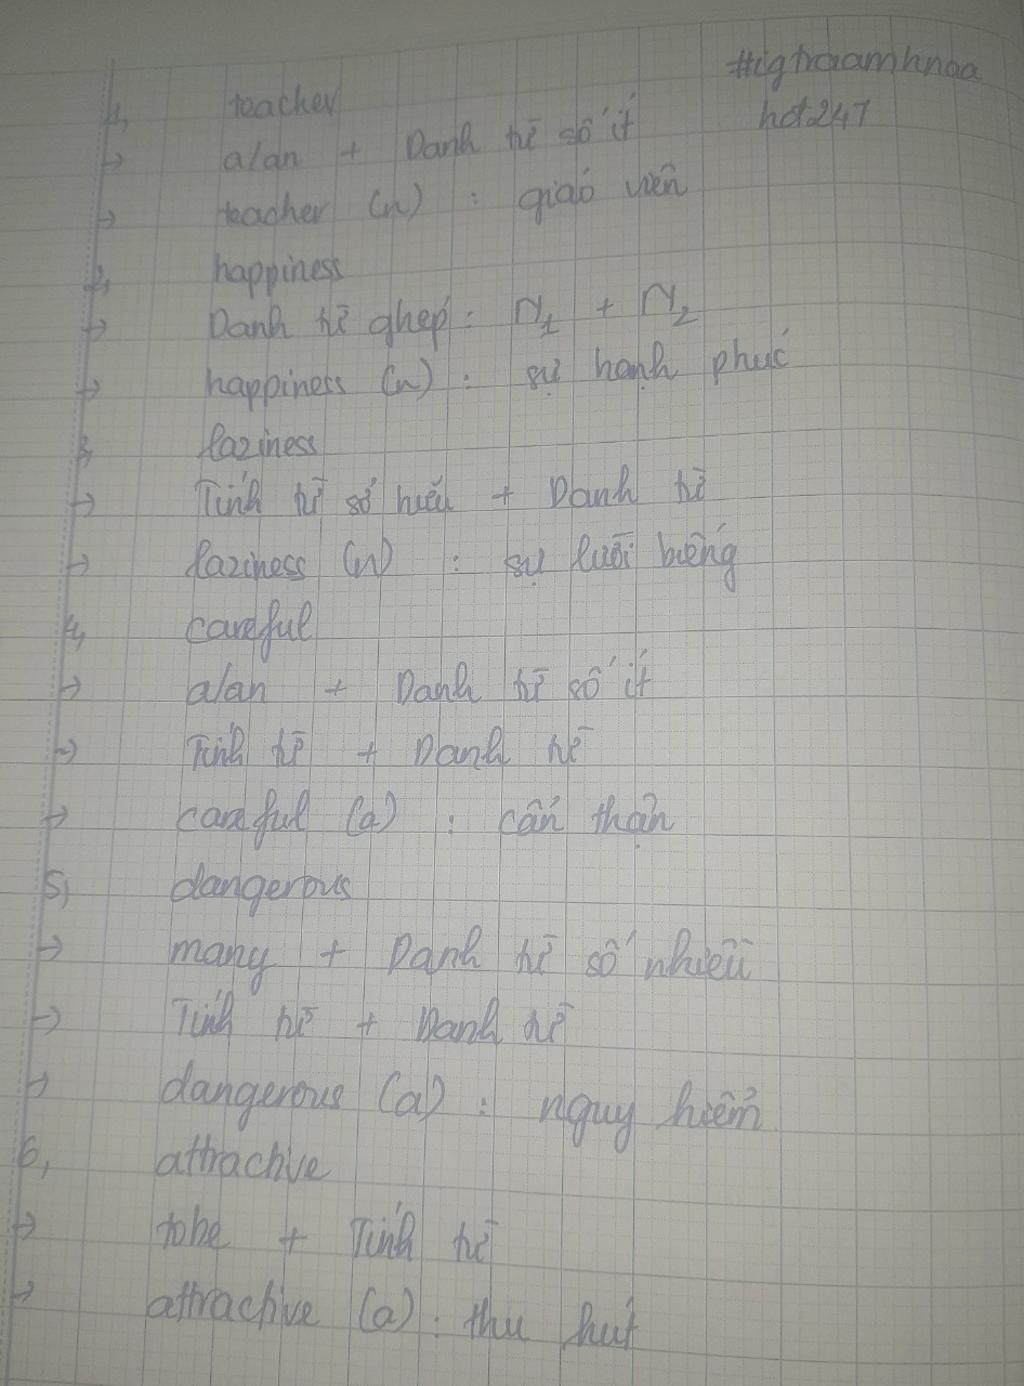 #igtraamhnaa
hot247
1, teacher
→ a/an + Danh từ số ít
→ teacher (n) : giáo viên
2, happiness
→ Danh từ ghép : N1 + N2
→ happiness (n) : sự hạnh phúc
3, laziness
→ Tính từ sở hữu + Danh từ
→ laziness (n) : sự lười biếng
4, careful
→ a/an + Danh từ số ít
→ Tính từ + Danh từ
→ careful (a) : cẩn thận
5, dangerous
→ many + Danh từ số nhiều
→ Tính từ + Danh từ
→ dangerous (a) : nguy hiểm
6, attractive
→ tobe + Tính từ
→ attractive (a) : thu hút